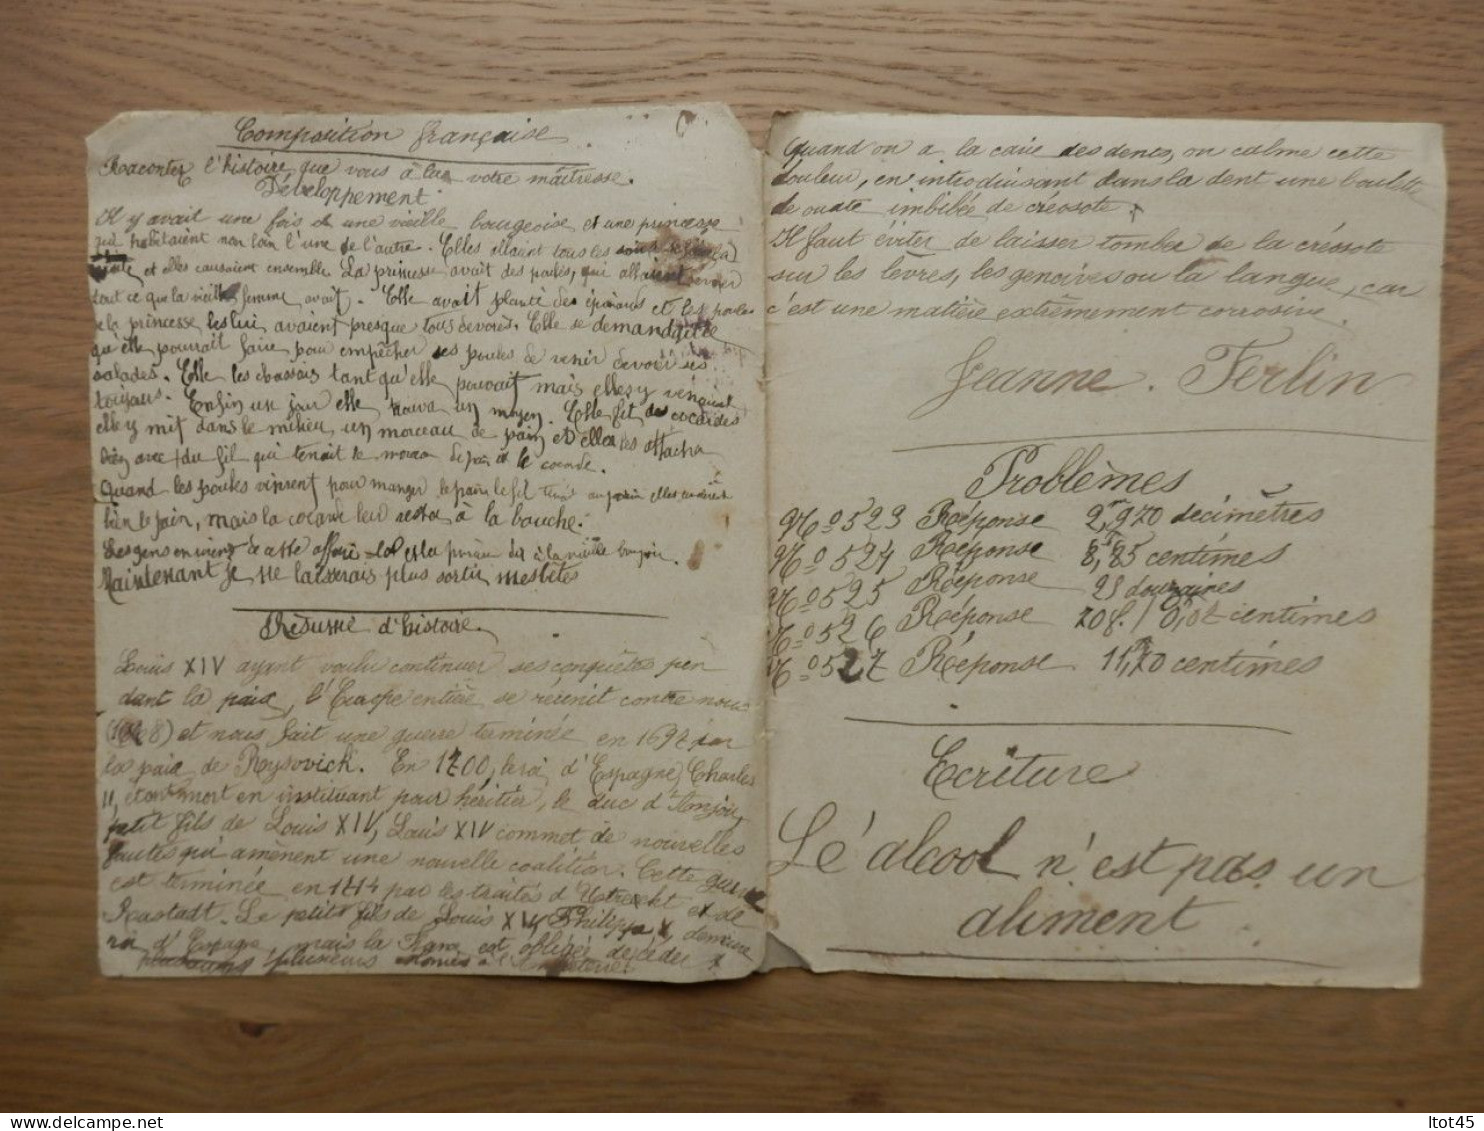 Composition française
Raconter l'histoire que vous a lue votre maîtresse.
Développement
Il y avait une fois une vieille bourgeoise et une princesse
qui habitaient non loin l'une de l'autre. Elles allaient tous les
et elles causaient ensemble La princesse avait des poules, qui allaient
tout ce que la vieille femme avait. Elle avait planté des épinards et les poules
de la princesse les lui avaient presque tous dévorés. Elle se demandait ce
qu'elle pourrait faire pour empêcher ses poules de venir dévorer ses
salades. Elle les chassait tant qu'elle pouvait mais elles y venaient
toujours. Enfin un jour elle trouva un moyen. Elle fit des cocardes
elle y mit dans le milieu, un morceau de pain et elle les attacha
bien avec du fil qui tenait le morceau de pain à la cocarde.
Quand les poules vinrent pour manger le pain le fil tenait au pain elles
bien le pain, mais la cocarde leur resta à la bouche.
Les gens de cette affaire
Maintenant je ne laisserais plus sortir mes bêtes
Résumé d'histoire.
Louis XIV ayant voulu continuer ses conquêtes pen
dant la paix, l'Europe entière se réunit contre nous
(1688) et nous fait une guerre terminée en 1697 par
la paix de Rysovick. En 1700, le roi d'Espagne, Charles
II, étant mort en instituant pour héritier, le duc d'Anjou,
petit fils de Louis XIV, Louis XIV commet de nouvelles
fautes qui amènent une nouvelle coalition. Cette guerre
est terminée en 1714 par les traités d'Utrecht et de
Rastadt. Le petit fils de Louis XIV, Philippe V, demeure
roi d'Espagne, mais la France est obligée de céder
plusieurs colonies à l'Angleterre
Quand on a la carie des dents, on calme cette
douleur, en introduisant dans la dent une boulette
de ouate imbibée de créosote.
Il faut éviter de laisser tomber de la créosote
sur les lèvres, les gencives ou la langue, car
c'est une matière extrêmement corrosive.
Jeanne. Ferlin
Problèmes
No 523 Réponse 2,970 décimètres
No 524 Réponse 8,85 centimes
No 525 Réponse 25 douzaines
No 526 Réponse 70 f. / 0,02 centimes
No 527 Réponse 11,70 centimes
Ecriture
Lé alcool n'est pas un
aliment
ltot45